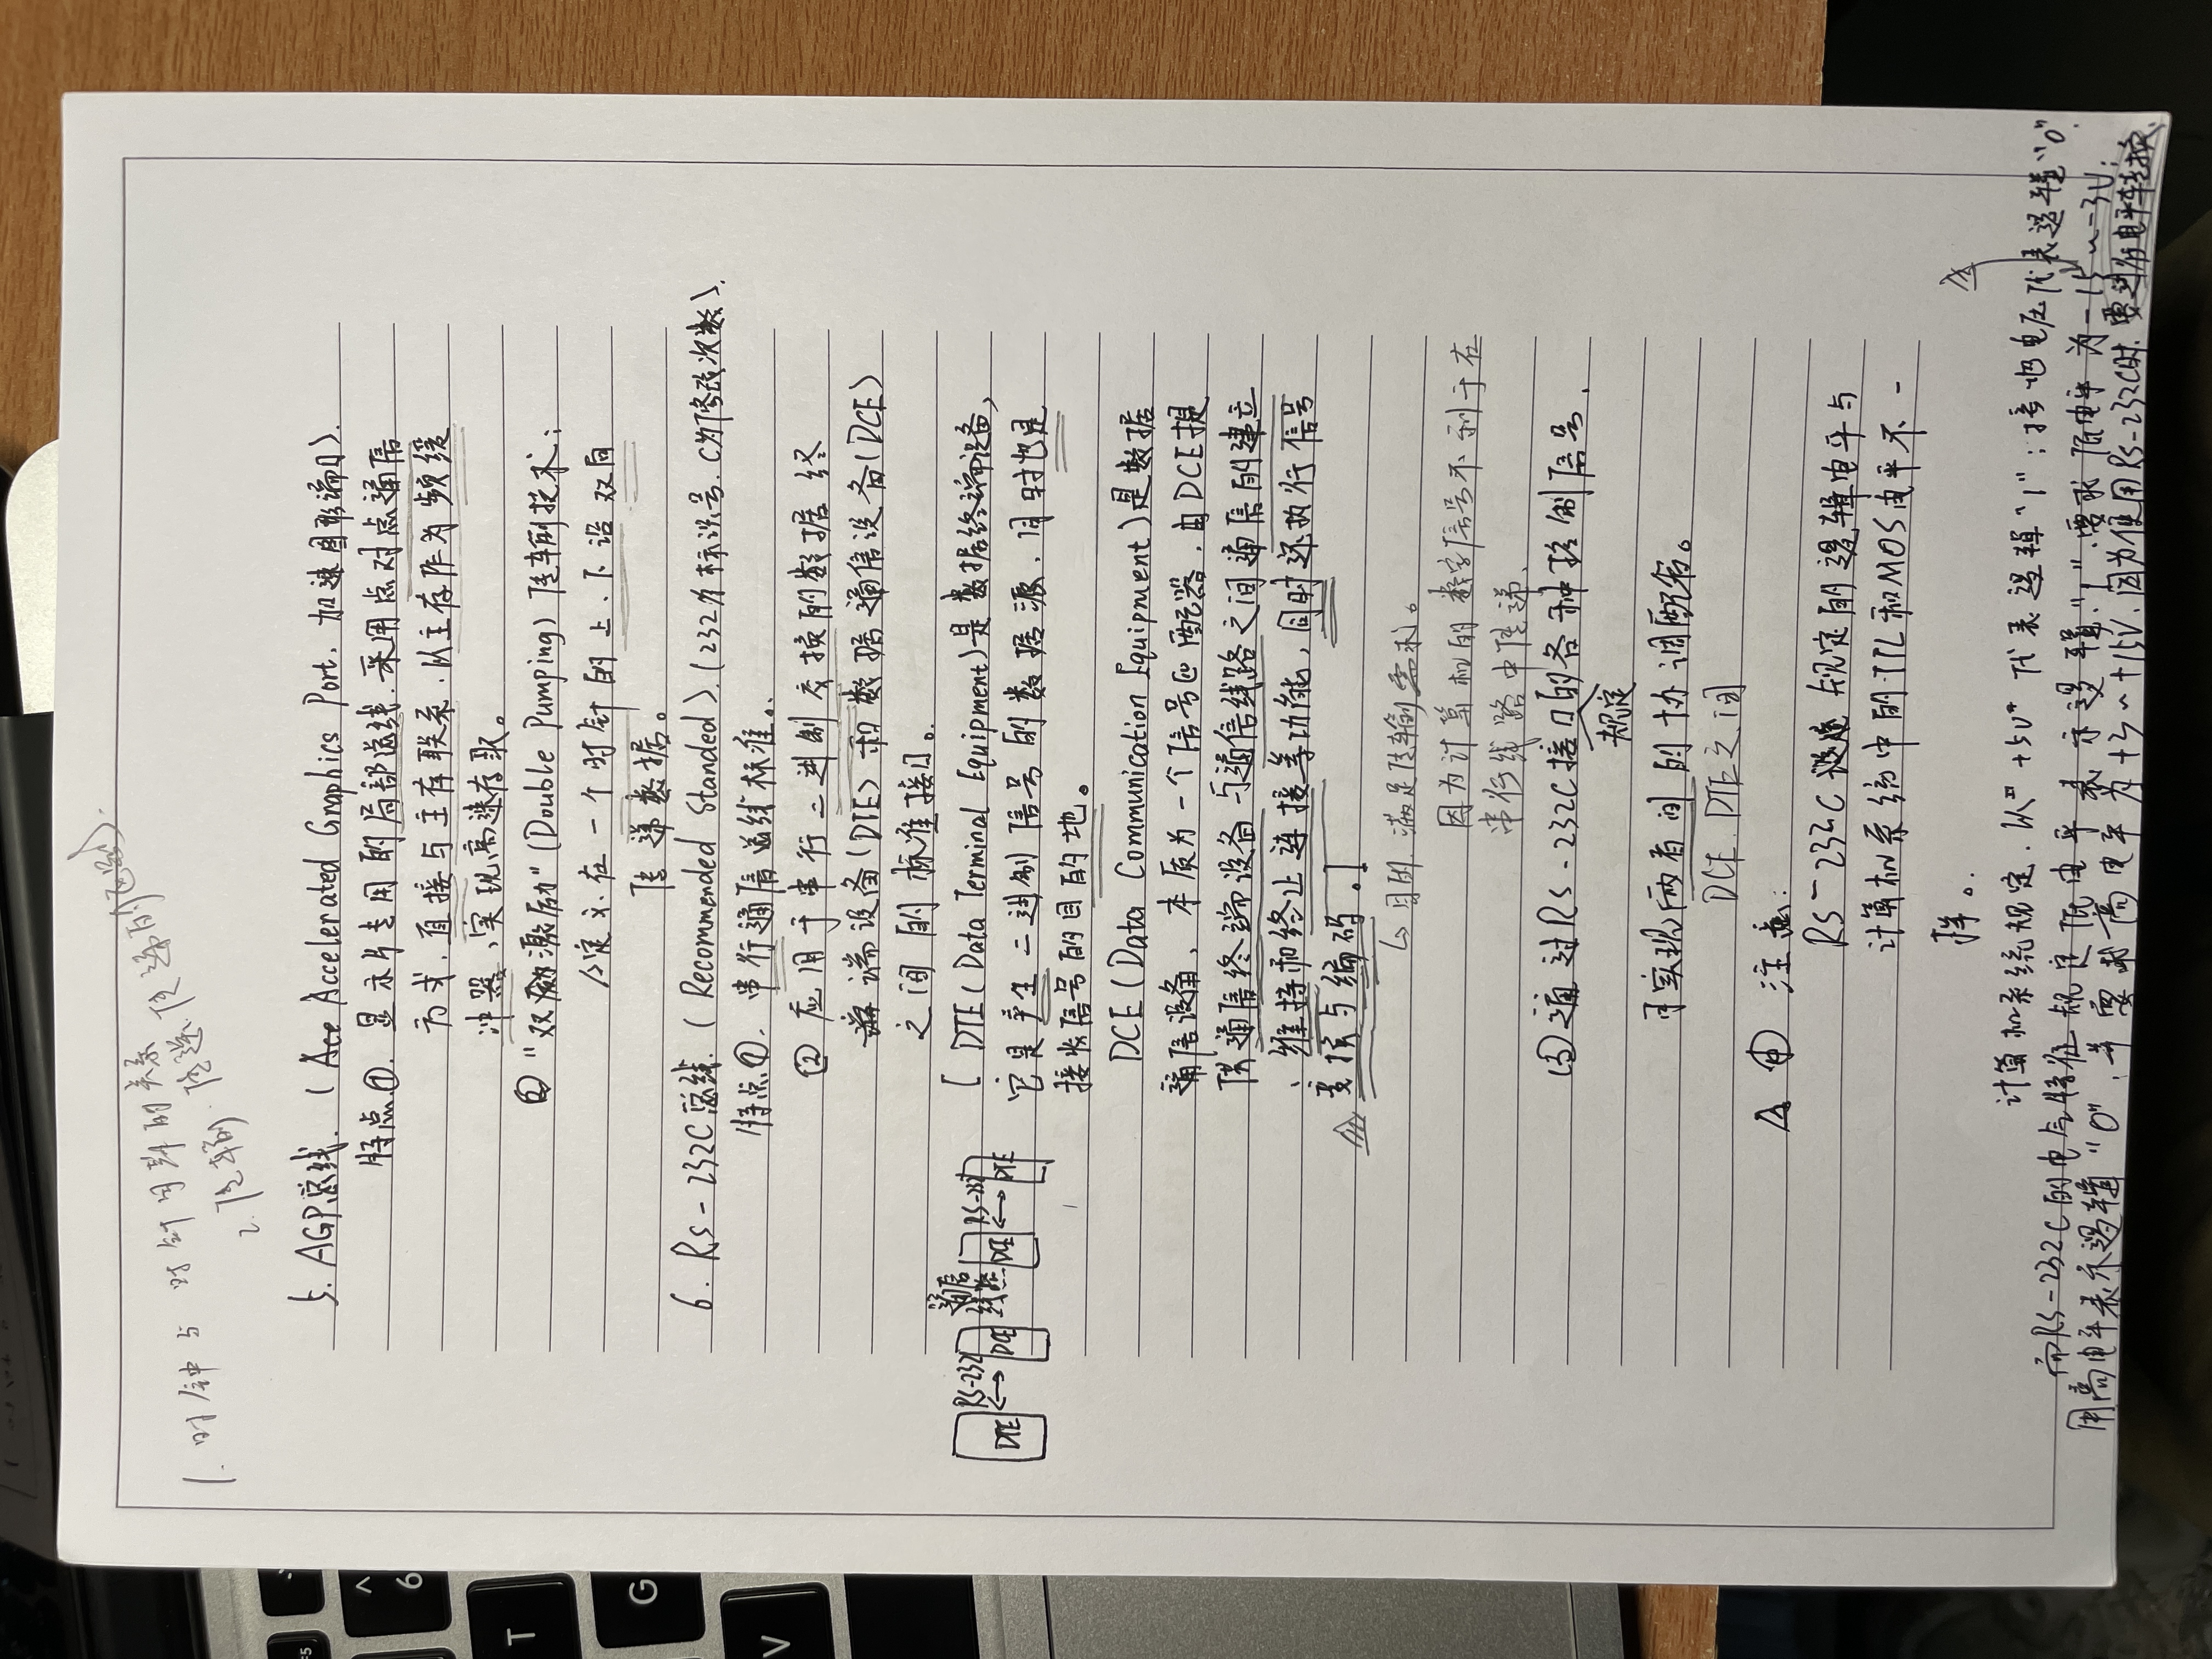 1. 时钟与时钟周期的关系
2. 传输、传送、传递的区别.
5. AGP总线. (Ace Accelerated Graphics Port. 加速图形端口).
特点①. 显示卡专用的局部总线. 采用点对点通信
方式. 直接与主存联系. 以主存作为频缓
冲器, 实现高速存取。
② "双激励" (Double Pumping) 传输技术:
↳定义. 在一个时钟的上、下沿双向
传递数据。
6. Rs-232C总线. (Recommended Standed). (232为标识号. C为修改次数).
特点①. 串行通信总线标准。
② 应用于串行二进制交换的数据终
端设备(DTE) 和数据通信设备(DCE)
之间的标准接口。
DTE RS-232 DCE 通信线路 DCE RS-232 DTE
[ DTE(Data Terminal Equipment)是数据终端设备,
它是产生二进制信号的数据源. 同时也是
接收信号的目的地。
DCE(Data Communication Equipment)是数据
通信设备. 本质为一个信号匹配器. 由DCE提
供通信终端设备与通信线路之间通信的建立
、维持和终止连接等功能, 同时还执行信号
变换与编码。]
↳目的. 满足传输需求。
因为计算机的数字信号不利于在
串行线路中传递.
③ 通过Rs-232C接口规定的各种控制信号.
可实现两者间的协调配合。
DCE. DTE之间
△ ④ 注意:
RS-232C 规定的逻辑电平与
计算机系统中的TTL和MOS电平不一
样。
计算机系统规定. 以"+5V" 代表逻辑"1"; 接地电压代表逻辑"0"
而RS-232C的电气特征规定低电平表示逻辑"1". 要求低电平为-15~-3V;
用高电平表示逻辑"0", 并要求高电平为+3~+15V. 因为使用RS-232C时. 要进行电平转换.